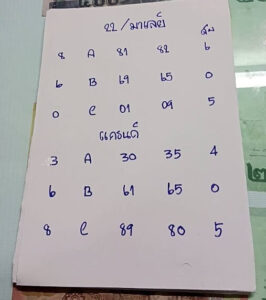 22/มาเลย์
ลุ้น
8 A 81 82 6
6 B 69 65 0
0 C 01 09 5
แกรนด์
3 A 30 35 4
6 B 61 65 0
8 C 89 80 5